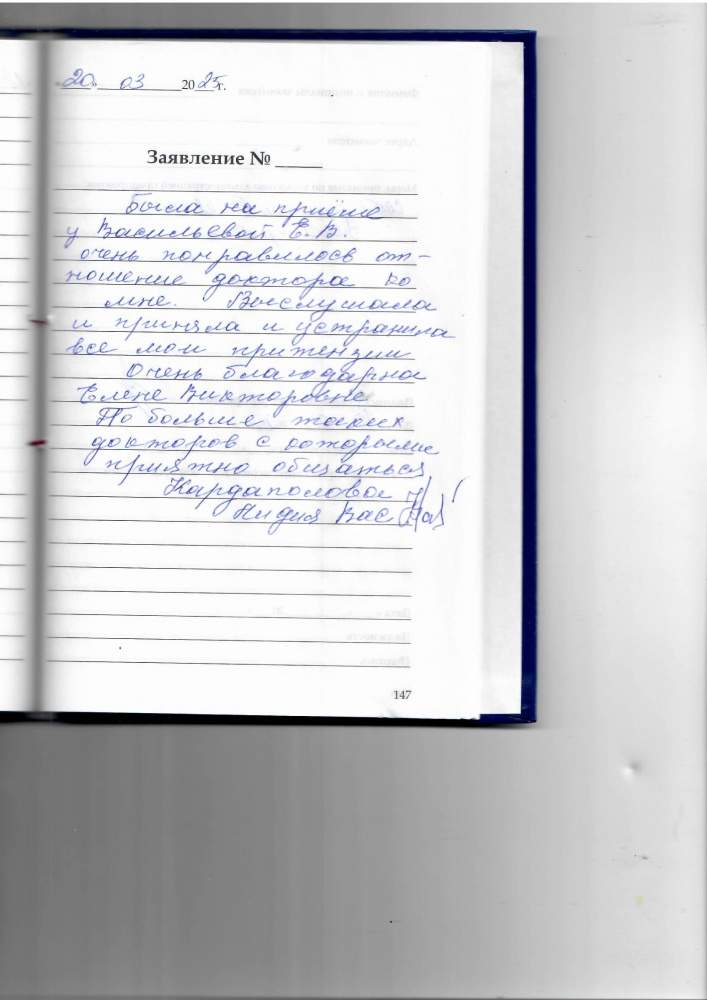 «20» 03 2025г.
Заявление № _____
Была на приёме
у Васильевой Е.В.
очень понравилось от-
ношение доктора ко
мне. Выслушала
и приняла и устранила
все мои притензии
Очень благодарна
Елене Викторовне
По больше таких
докторов с которыми
приятно общаться
Кардаполова
Лидия Вас
147